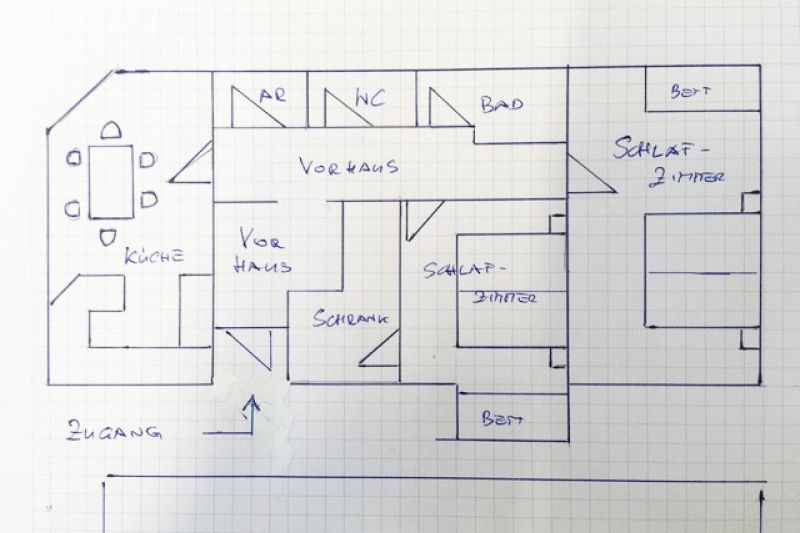 AR
WC
BAD
BETT
VORHAUS
SCHLAF-
ZIMMER
VOR
HAUS
KÜCHE
SCHLAF-
ZIMMER
SCHRANK
BETT
ZUGANG